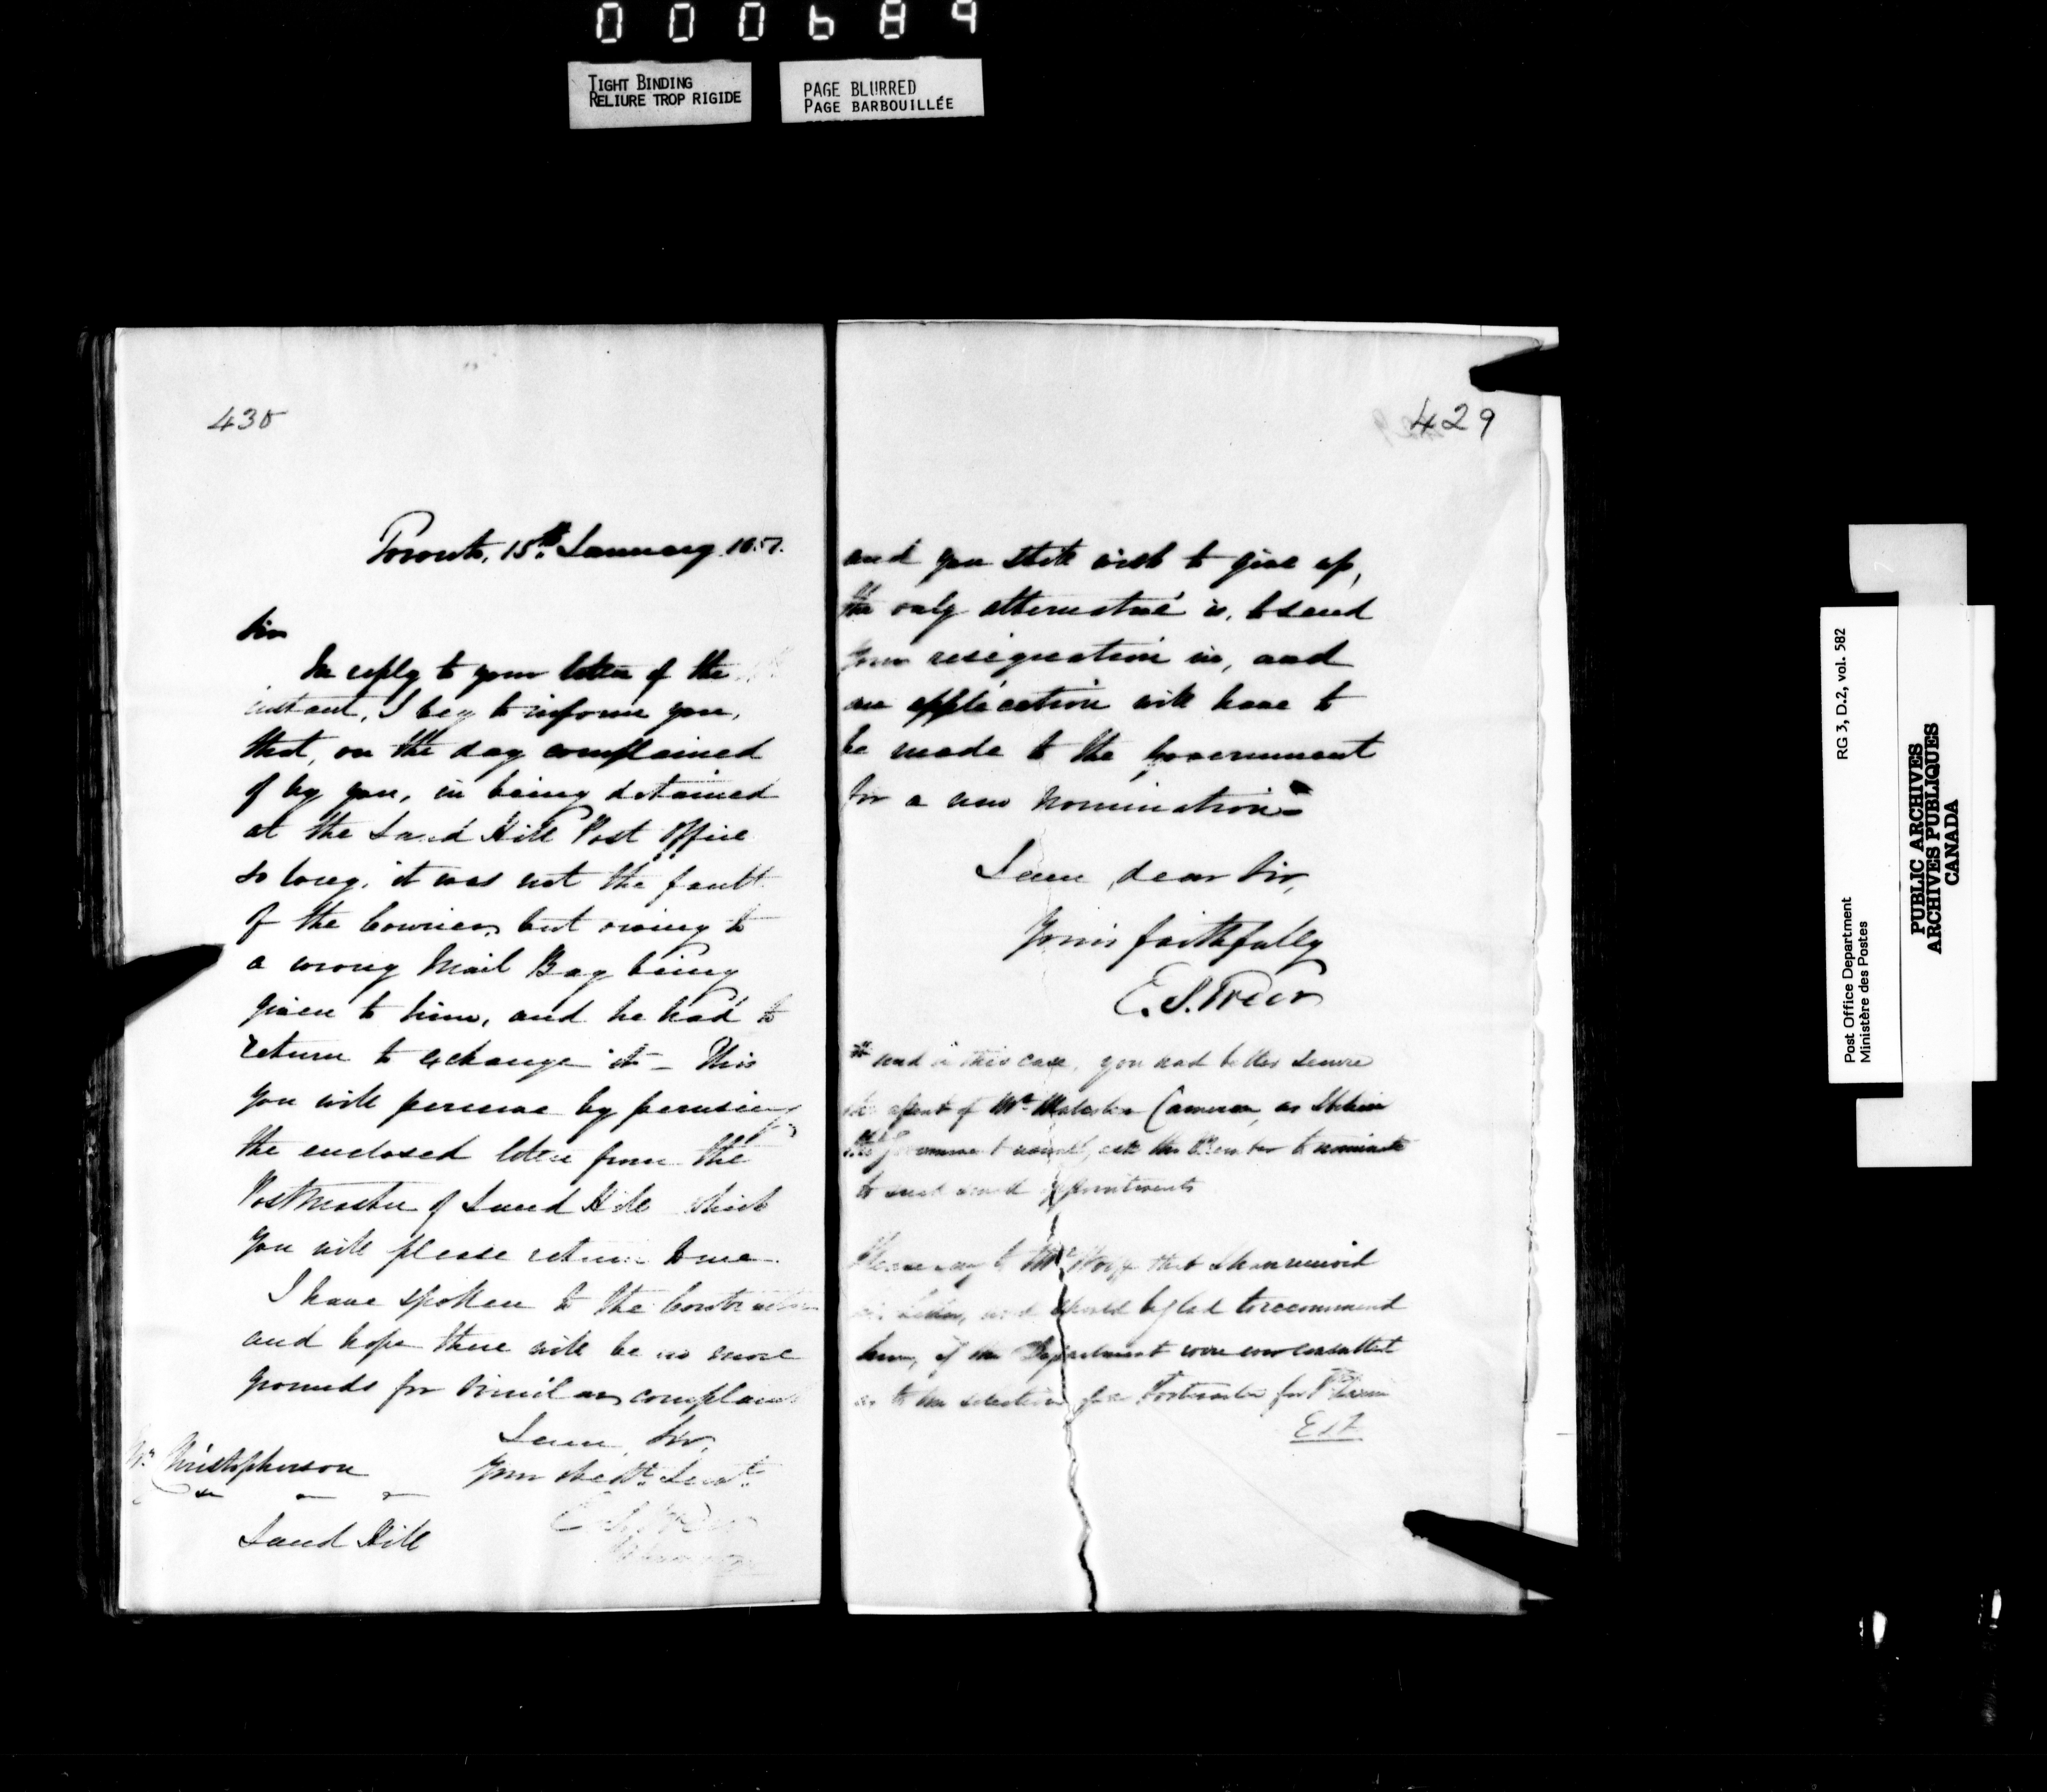 000689
TIGHT BINDING
RELIURE TROP RIGIDE
PAGE BLURRED
PAGE BARBOUILLÉE
430
Toronto, 15th January 1857.
Sir
In reply to your letter of the
instant, I beg to inform you,
that, on the day complained
of by you, in being detained
at the Sand Hill Post Office
so long, it was not the fault
of the Courier, but owing to
a wrong Mail Bag being
given to him, and he had to
return to exchange it – This
you will perceive by perusing
the enclosed letter from the
Postmaster of Sand Hill which
you will please return to me.
I have spoken to the Contractor
and hope there will be no more
grounds for similar complaints
I am, Sir,
Your obedt. Servt.
Christopherson
Sand Hill
429
and you still wish to give up,
the only alternative is, to send
your resignation in, and
an application will have to
be made to the Government
for a new nomination
I am, dear Sir,
Yours faithfully
E. S. Freer
and in this case, you had better secure
the assent of Mr. Malcolm Cameron, as I believe
the Government usually ask the Member to nominate
to such small appointments
Please say to Mr that I have received
his letter, and should be glad to recommend
him, if the Department were ever consulted
as to the selection of a Postmaster for
E S F
Post Office Department
Ministère des Postes
RG 3, D.2, vol. 582
PUBLIC ARCHIVES
ARCHIVES PUBLIQUES
CANADA